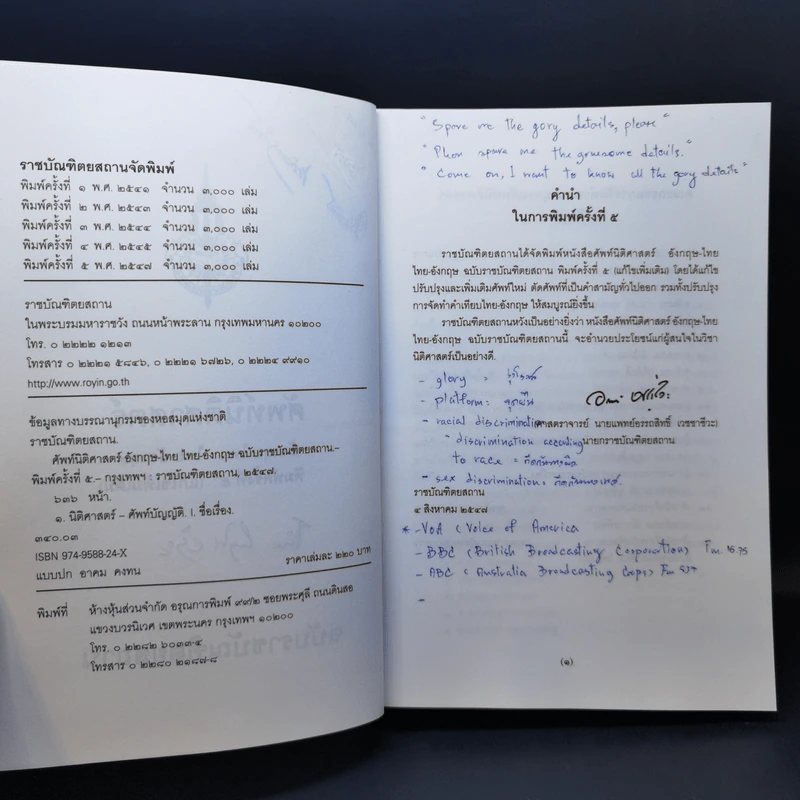 ราชบัณฑิตยสถานจัดพิมพ์
พิมพ์ครั้งที่ ๑ พ.ศ. ๒๕๔๑ จำนวน ๓,๐๐๐ เล่ม
พิมพ์ครั้งที่ ๒ พ.ศ. ๒๕๔๓ จำนวน ๓,๐๐๐ เล่ม
พิมพ์ครั้งที่ ๓ พ.ศ. ๒๕๔๔ จำนวน ๓,๐๐๐ เล่ม
พิมพ์ครั้งที่ ๔ พ.ศ. ๒๕๔๕ จำนวน ๓,๐๐๐ เล่ม
พิมพ์ครั้งที่ ๕ พ.ศ. ๒๕๔๗ จำนวน ๓,๐๐๐ เล่ม
ราชบัณฑิตยสถาน
ในพระบรมมหาราชวัง ถนนหน้าพระลาน กรุงเทพมหานคร ๑๐๒๐๐
โทร. ๐ ๒๒๒๒ ๑๒๑๓
โทรสาร ๐ ๒๒๒๑ ๕๘๔๖, ๐ ๒๒๒๑ ๖๘๒๖, ๐ ๒๒๒๔ ๙๙๑๐
http://www.royin.go.th
ข้อมูลทางบรรณานุกรมของหอสมุดแห่งชาติ
ราชบัณฑิตยสถาน.
ศัพท์นิติศาสตร์ อังกฤษ-ไทย ไทย-อังกฤษ ฉบับราชบัณฑิตยสถาน.–
พิมพ์ครั้งที่ ๕.– กรุงเทพฯ : ราชบัณฑิตยสถาน, ๒๕๔๗.
๖๓๖ หน้า.
๑. นิติศาสตร์ – ศัพท์บัญญัติ. I. ชื่อเรื่อง.
๓๔๐.๐๓
ISBN 974-9588-24-X ราคาเล่มละ ๒๒๐ บาท
แบบปก อาคม คงทน
พิมพ์ที่ ห้างหุ้นส่วนจำกัด อรุณการพิมพ์ ๙๙/๒ ซอยพระศุลี ถนนดินสอ
แขวงบวรนิเวศ เขตพระนคร กรุงเทพฯ ๑๐๒๐๐
โทร. ๐ ๒๒๘๒ ๖๐๓๓-๔
โทรสาร ๐ ๒๒๘๐ ๒๑๘๗-๘
"Spare me the gory details, please"
"Pleas spare me the gruesome details."
"Come on, I want to know all the gory details"
คำนำ
ในการพิมพ์ครั้งที่ ๕
ราชบัณฑิตยสถานได้จัดพิมพ์หนังสือศัพท์นิติศาสตร์ อังกฤษ-ไทย
ไทย-อังกฤษ ฉบับราชบัณฑิตยสถาน พิมพ์ครั้งที่ ๕ (แก้ไขเพิ่มเติม) โดยได้แก้ไข
ปรับปรุงและเพิ่มเติมศัพท์ใหม่ ตัดศัพท์ที่เป็นคำสามัญทั่วไปออก รวมทั้งปรับปรุง
การจัดทำคำเทียบไทย-อังกฤษ ให้สมบูรณ์ยิ่งขึ้น
ราชบัณฑิตยสถานหวังเป็นอย่างยิ่งว่า หนังสือศัพท์นิติศาสตร์ อังกฤษ-ไทย
ไทย-อังกฤษ ฉบับราชบัณฑิตยสถานนี้ จะอำนวยประโยชน์แก่ผู้สนใจในวิชา
นิติศาสตร์เป็นอย่างดี.
- glory =
- platform:
- racial discrimination
(ศาสตราจารย์ นายแพทย์อรรถสิทธิ์ เวชชาชีวะ)
" discrimination according
นายกราชบัณฑิตยสถาน
to race =
- sex discrimination =
ราชบัณฑิตยสถาน
๔ สิงหาคม ๒๕๔๗
* - VOA (Voice of America
- BBC (British Broadcasting Corporation) Fm.
- ABC (Australia Broadcasting Corp.) Fm
(๑)